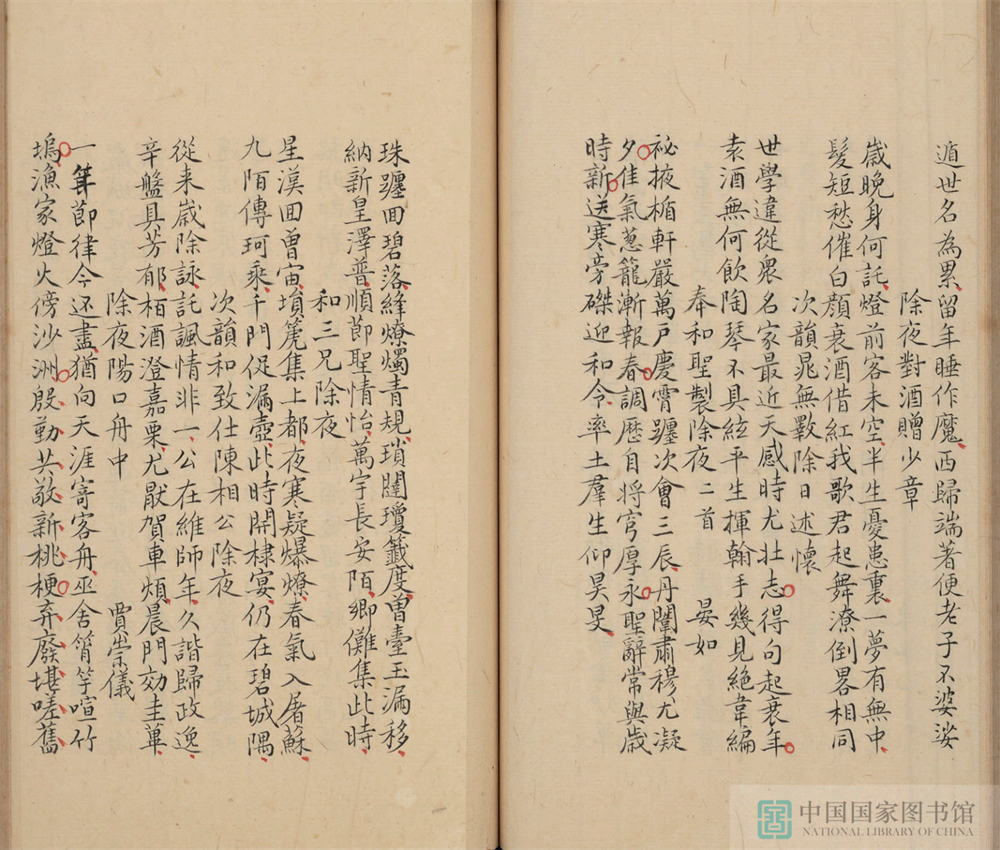 遁世名為累留年睡作魔西歸端著便老子不婆娑
除夜對酒贈少章
歲晚身何託燈前客未空半生憂患裏一夢有無中
髮短愁催白顏衰酒借紅我歌君起舞潦倒畧相同
次韻晁無斁除日述懷
世學違從衆名家最近天感時尤壯志得句起衰年
袁酒無何飲陶琴不具絃平生揮翰手幾見絶韋編
奉和聖製除夜二首 晏如
祕掖楯軒嚴萬戶慶霄躔次會三辰丹闈肅穆尤凝
夕佳氣蔥籠漸報春調歷自將穹厚永聖辭常與歲
時新送寒旁磔迎和令率土羣生仰昊旻
珠躔回碧落絳燎燭青規瑣闥瓊籤度曾臺玉漏移
納新皇澤普順節聖情怡萬宇長安陌鄉儺集此時
和三兄除夜
星漢回曾宙塤箎集上都夜寒疑爆燎春氣入屠蘇
九陌傳珂乘千門促漏壺此時開棣宴仍在碧城隅
次韻和致仕陳相公除夜
從来歲除詠託諷情非一公在維師年久諧歸政逸
辛盤具芳郁栢酒澄嘉栗尤厭賀車煩晨門効圭蓽
除夜陽口舟中 賈崇儀
一年節律今还盡猶向天涯寄客舟巫舍筲竽喧竹
塢漁家燈火傍沙洲殷勤共敬新桃梗弃廢堪嗟舊
中国国家图书馆
NATIONAL LIBRARY OF CHINA